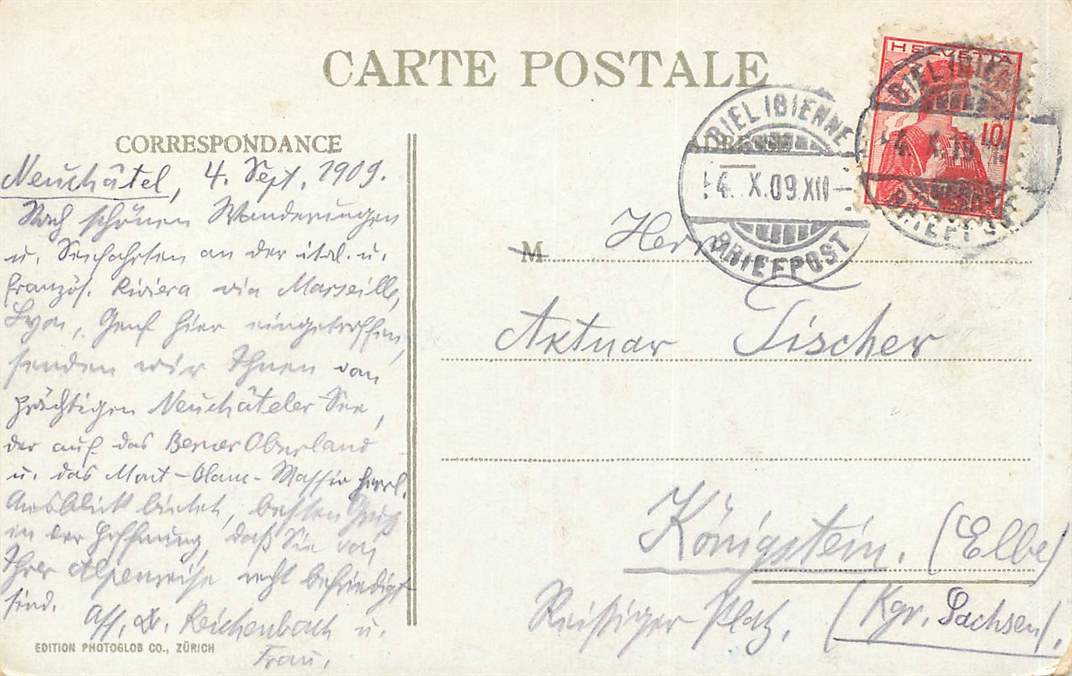 CARTE POSTALE
HELVETIA
10
BIEL (BIENNE)
-4. X. 09. XII-
BRIEFPOST
CORRESPONDANCE
Neuchâtel, 4. Sept. 1909.
Nach schönen Wanderungen
u. Seefahrten an der ital. u.
französ. Riviera via Marseille,
Lyon, Genf hier eingetroffen,
senden wir Ihnen vom
prächtigen Neuchâteler See,
der auf das Berner Oberland
u. das Mont-Blanc-Massiv herrl.
Ausblick bietet, besten Gruß
in der Hoffnung, daß Sie von
Ihrer Alpenreise recht befriedigt
sind.
Aff. Dr. Reichenbach u.
Frau.
M Herrn
Aktuar Tischer
Königstein. (Elbe)
Reißiger Platz. (Kgr. Sachsen).
EDITION PHOTOGLOB CO., ZÜRICH